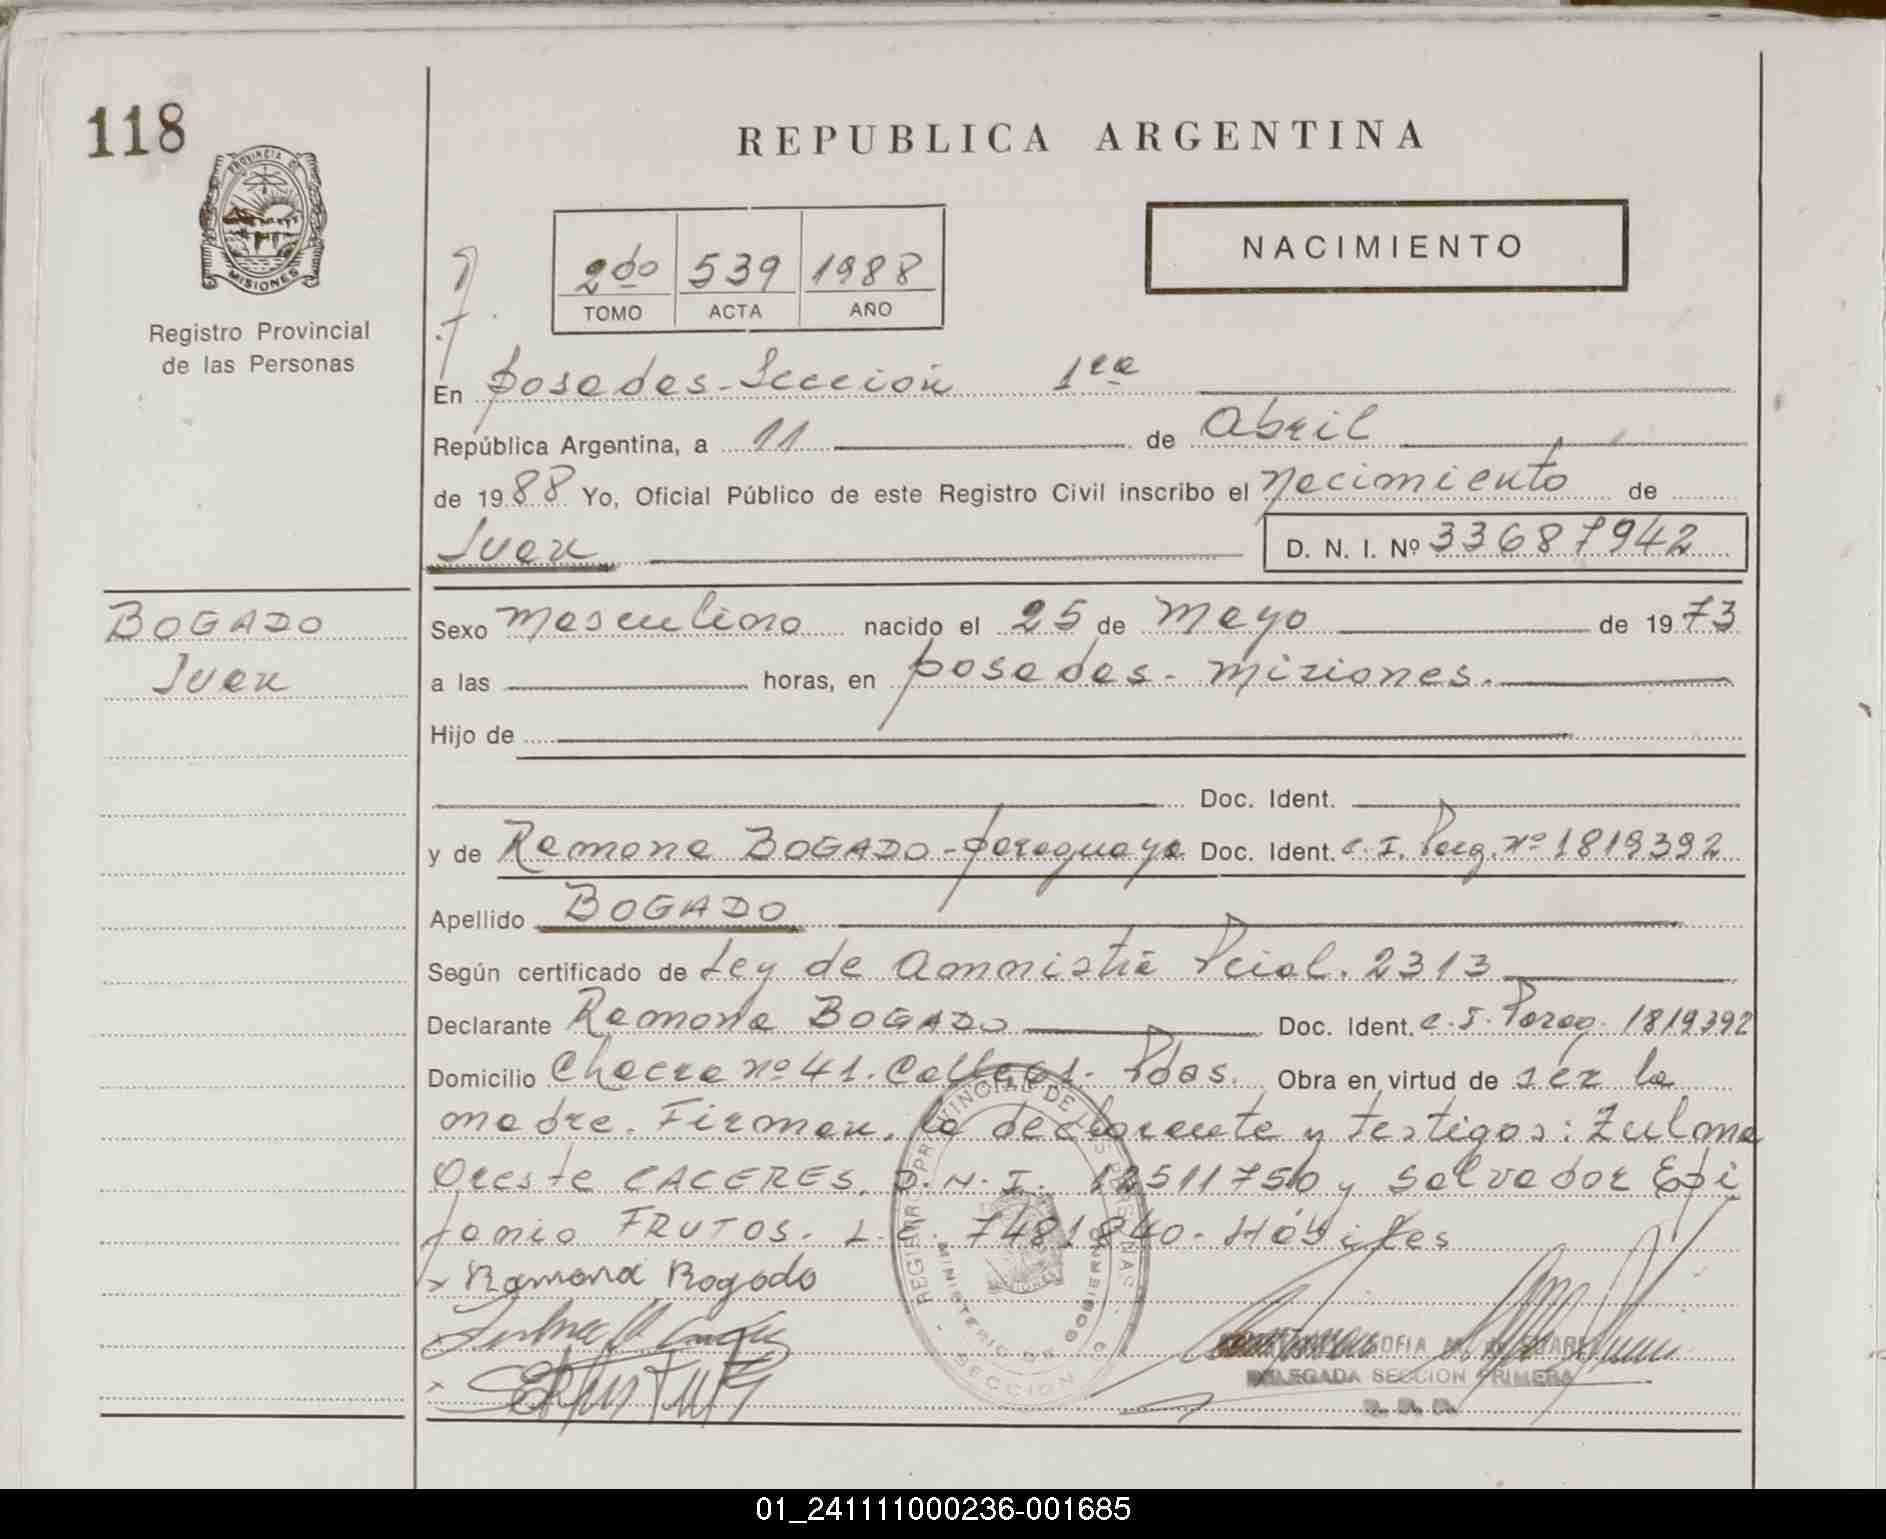 118
PROVINCIA DE
MISIONES
Registro Provincial
de las Personas
REPUBLICA ARGENTINA
NACIMIENTO
2do 539 1988
TOMO ACTA AÑO
En Posadas-Sección 1ra
República Argentina, a 11 de Abril
de 1988 Yo, Oficial Público de este Registro Civil inscribo el Nacimiento de
Juan D. N. I. Nº 33687942
BOGADO
Juan
Sexo Masculino nacido el 25 de Mayo de 1973
a las horas, en Posadas- Misiones.
Hijo de
Doc. Ident.
y de Ramona BOGADO-paraguaya Doc. Ident. C. I. Parg. Nº 1819392
Apellido BOGADO
Según certificado de Ley de Amnistia Pcial. 2313
Declarante Ramona BOGADO Doc. Ident. C. I. Parag. 1819392
Domicilio Chacra nº 41. Pdas. Obra en virtud de ser la
madre. Firman, la declarante y testigos: Zulma
Oreste CACERES. D.N.I. 12511750 y Salvador Epi
fanio FRUTOS. L.E. 7481840- Hábiles
x Ramona Bogado
REGISTRO PROVINCIAL DE LAS PERSONAS
MINISTERIO DE GOBIERNO
SECCION
SOFIA M. DE SUAREZ
DELEGADA SECCION PRIMERA
01_241111000236-001685